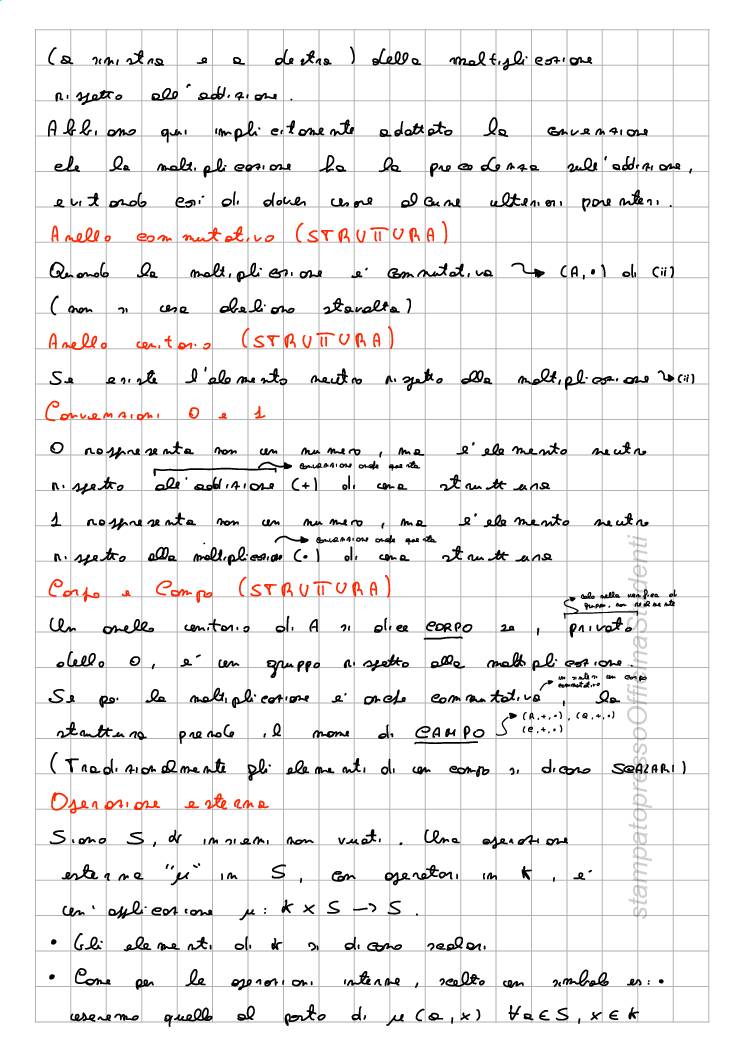 (a sinistra e a destra) della moltiplicazione
rispetto all'addizione.
Abbiamo qui implicitamente adottato la convenzione
che la moltiplicazione ha la precedenza sull'addizione,
evitando così di dover usare alcune ulteriori parentesi.
Anello commutativo (STRUTTURA)
Quando la moltiplicazione è commutativa → (A, •) di (ii)
(non si usa abeliano stavolta)
Anello unitario (STRUTTURA)
Se esiste l'elemento neutro rispetto alla moltiplicazione → (ii)
Convenzioni 0 e 1
0 rappresenta non un numero, ma l'elemento neutro
→ convenzione anche questa
rispetto all'addizione (+) di una struttura
1 rappresenta non un numero, ma l'elemento neutro
→ convenzione anche questa
rispetto alla moltiplicazion (•) di una struttura
Corpo e Campo (STRUTTURA)
→ solo nella verifica di gruppo, non realmente
Un anello unitario di A si dice CORPO se, privato
dello 0, è un gruppo rispetto alla moltiplicazione.
→ corpo commutativo
Se poi la moltiplicazione è anche commutativa, la
struttura prende il nome di CAMPO → (R,+,•), (Q,+,•)
(C,+,•)
(Tradizionalmente gli elementi di un campo si dicono SCALARI)
Operazione esterna
Siano S, K insiemi non vuoti. Una operazione
esterna "μ" in S, con operatori in K, è
un'applicazione μ: K x S → S.
• Gli elementi di K si dicono scalari
• Come per le operazioni interne, scelto un simbolo es: •
useremo quello al posto di μ(a,x) ∀a∈S, x∈K
stampatopressoOfficinaStudenti